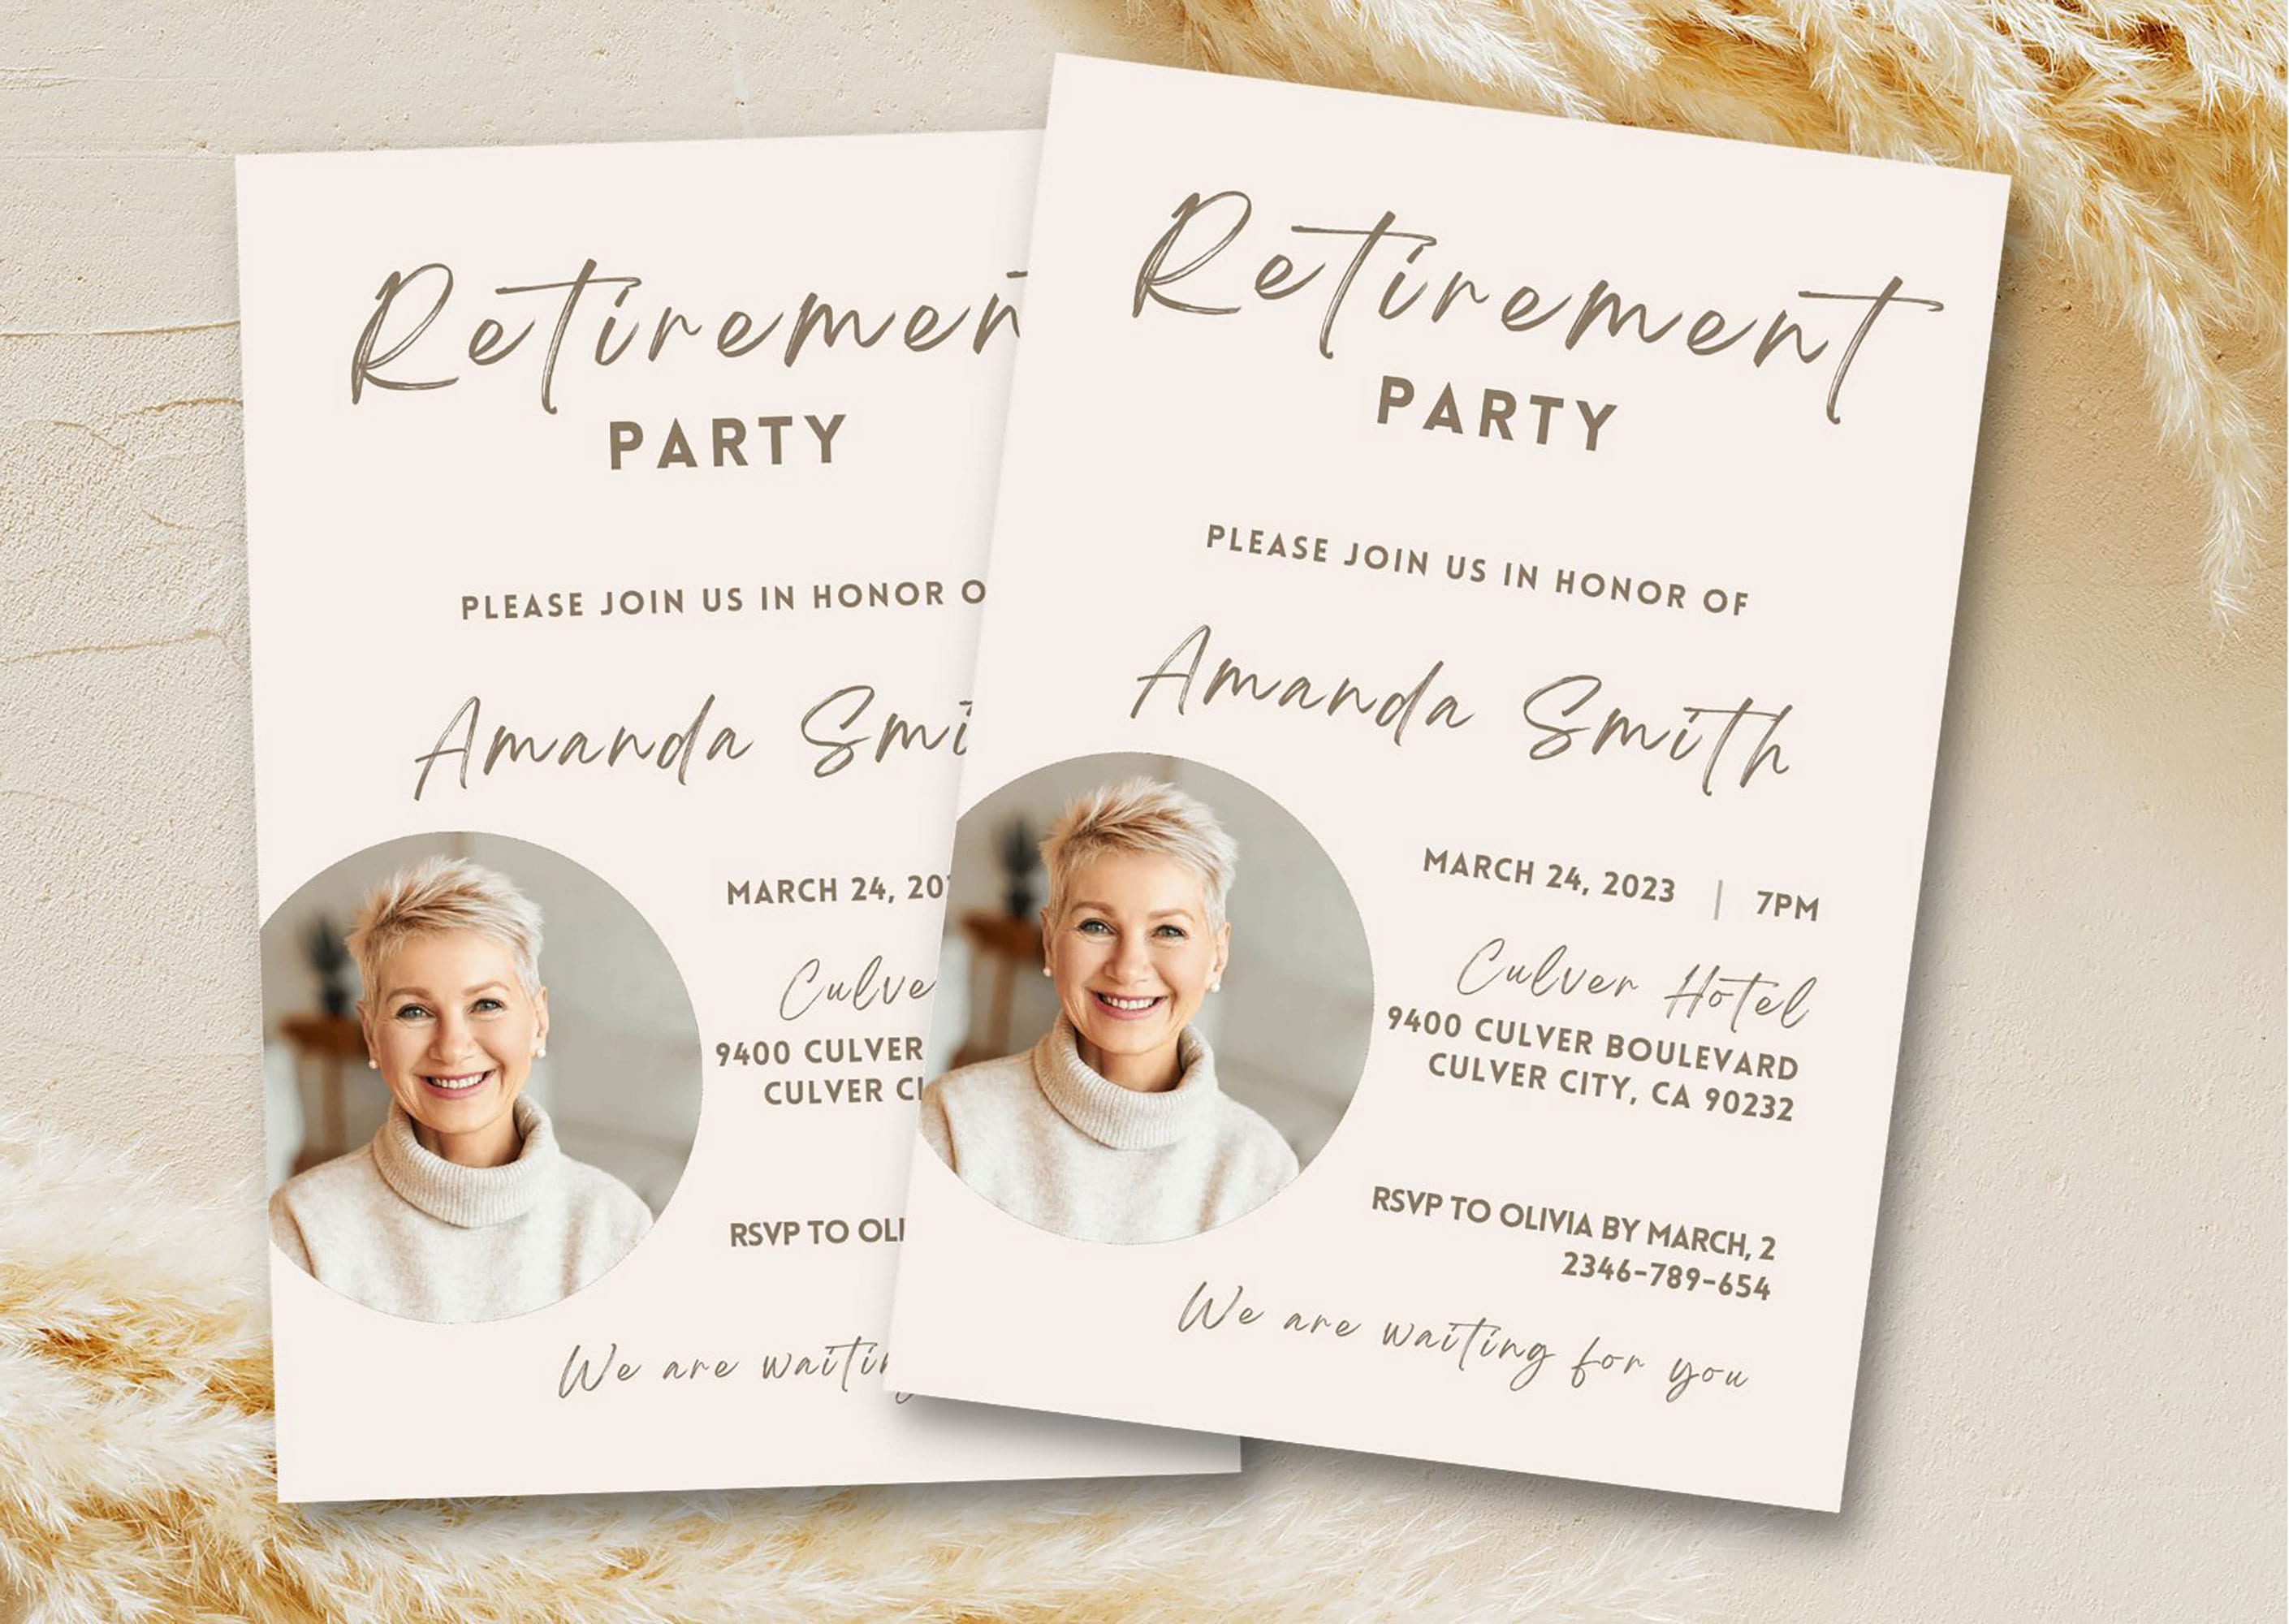 Retiremen
PARTY
PLEASE JOIN US IN HONOR O
Amanda Smi
MARCH 24, 20
Culve
9400 CULVER
CULVER CI
RSVP TO OLI
We are waitin
Retirement
PARTY
PLEASE JOIN US IN HONOR OF
Amanda Smith
MARCH 24, 2023 | 7PM
Culver Hotel
9400 CULVER BOULEVARD
CULVER CITY, CA 90232
RSVP TO OLIVIA BY MARCH, 2
2346-789-654
We are waiting for you